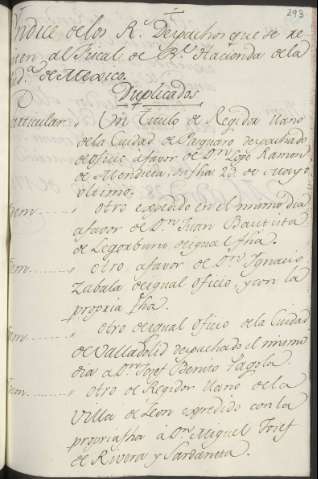 293
Yndice de los R.s Despachos que se re
al Fiscal de R.l Hacienda de la
de Mexico.
Duplicados
Particular. Un Titulo de Regidor llano
de la Ciudad de Pazquaro despachado
de oficio a favor de D.n Ramon
de Mendieta, su fha 23 de Mayo
ultimo.
Idem otro expedido en el mismo dia
a favor de D.n Juan Bautista
de de igual fha.
Idem otro a favor de D.n Ignacio
Zabala de igual oficio, y con la
propria fha.
Idem otro de igual oficio de la Ciudad
de Valladolid despachado el mismo
dia a D.n Josef Benito
Idem otro de Regidor llano de la
Villa de Leon expedido con la
propria fha a D.n Miguel Josef
de Rivera y